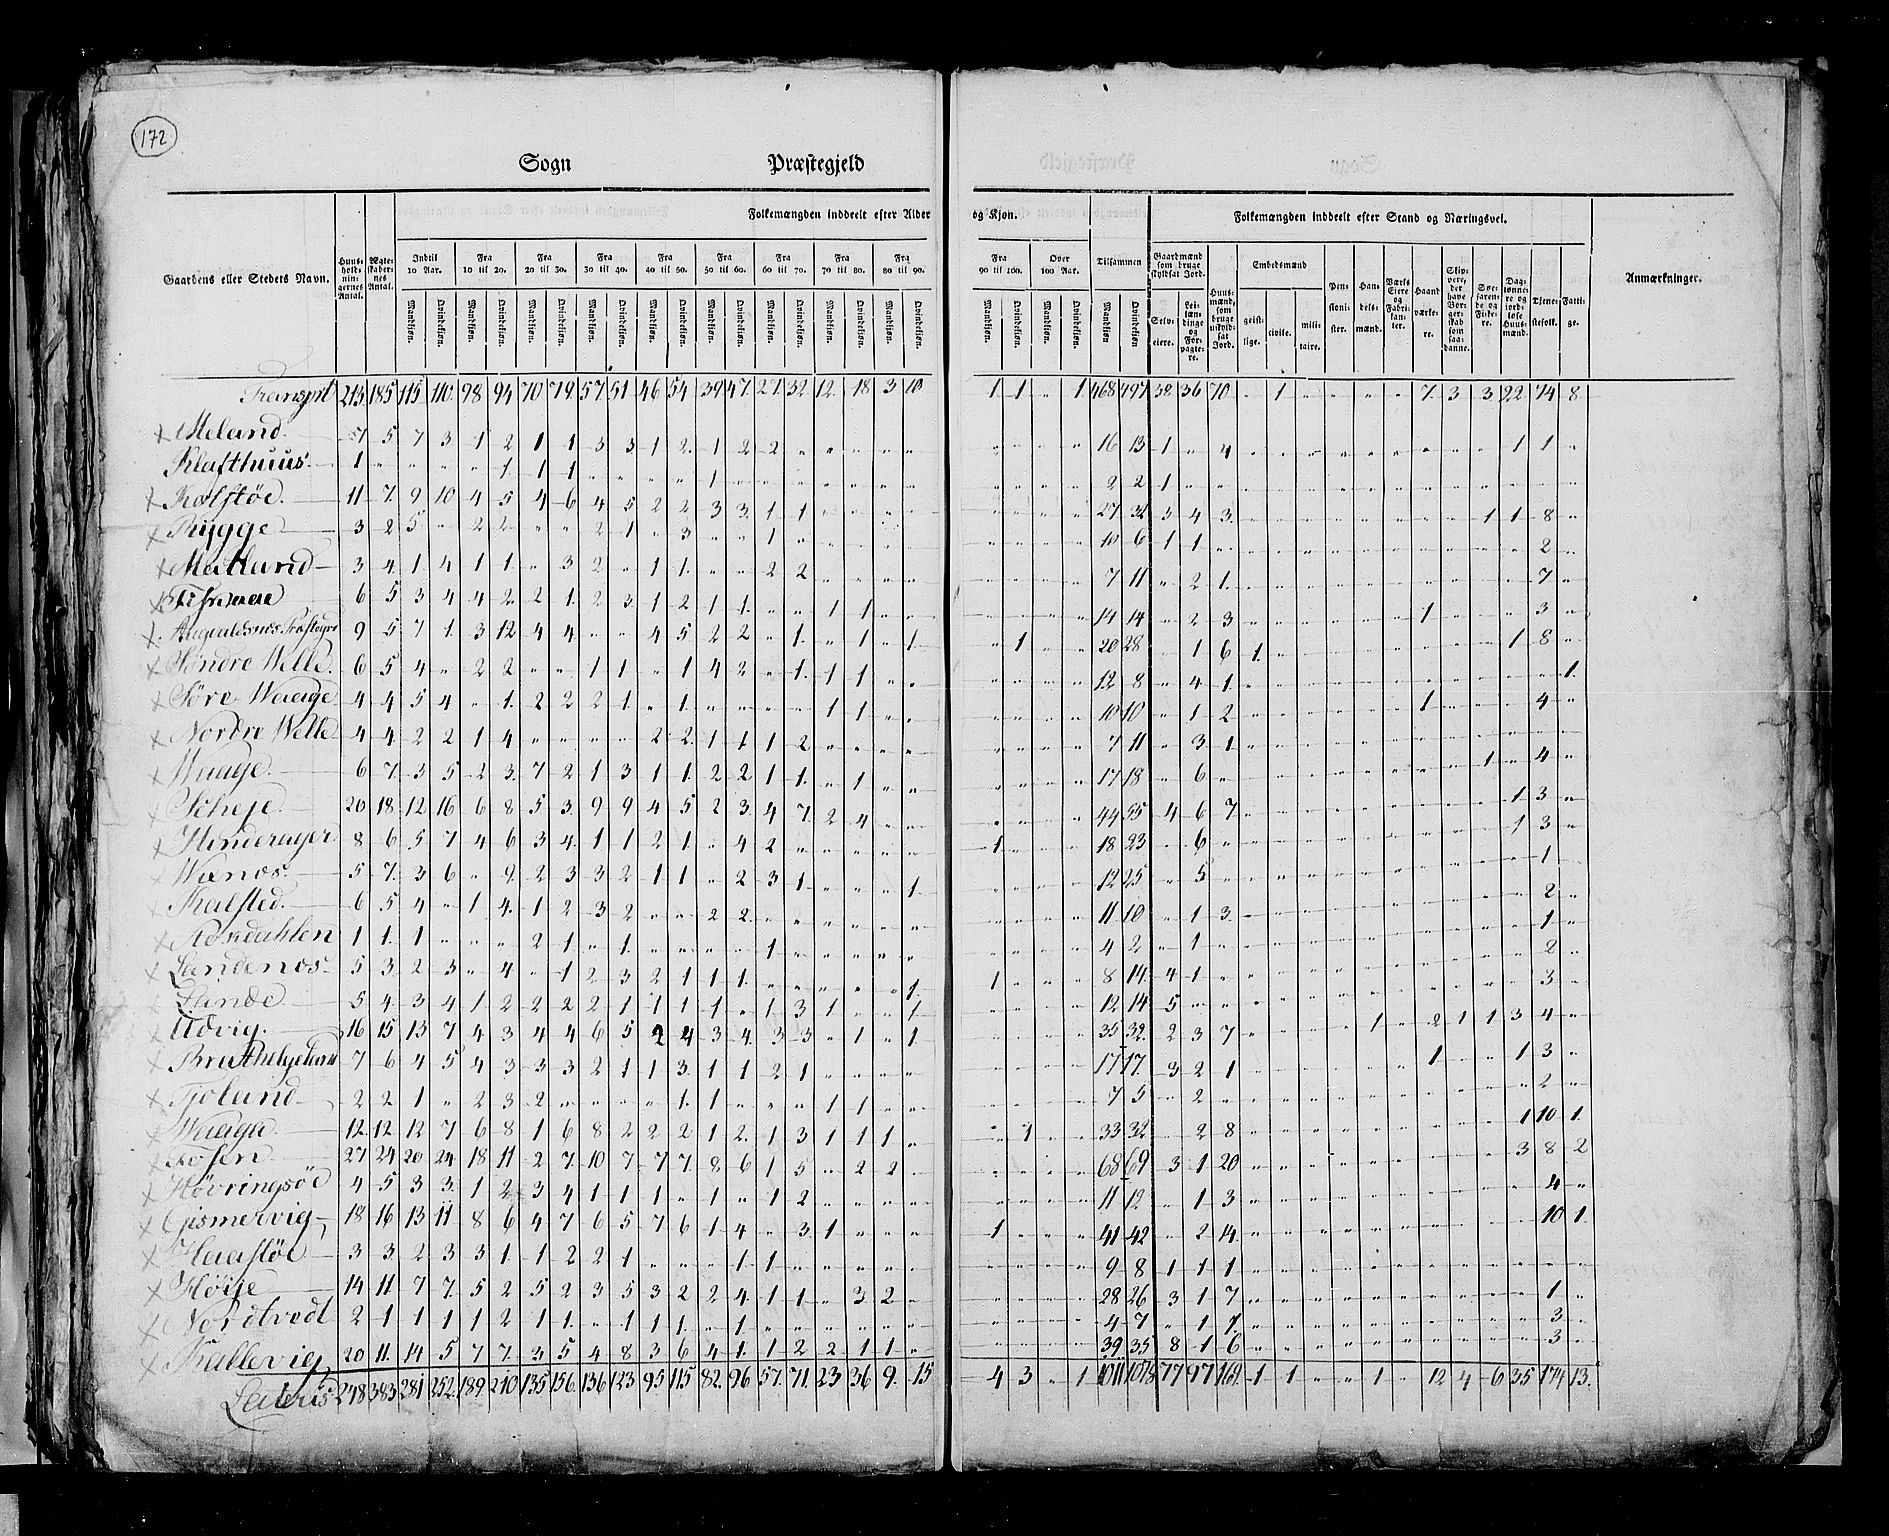 172
Sogn Præstegjeld
Folkemængden inddeelt efter Alder og Kjøn. Folkemængden inddeelt efter Stand og Næringsvei.
Gaardens eller Stedets Navn. Huus-hold-nin-gernes Antal. Ægte-skaber-nes Antal. Indtil 10 Aar. Fra 10 til 20. Fra 20 til 30. Fra 30 til 40. Fra 40 til 50. Fra 50 til 60. Fra 60 til 70. Fra 70 til 80. Fra 80 til 90. Fra 90 til 100. Over 100 Aar. Tilsammen Gaardmænd som bruge skyldsat Jord. Huus-mænd, som bruge uskyld-sat Jord. Embedsmænd Pen-sioni-ster. Han-dels-mænd. Værks-Eiere og Fabri-kan-ter. Haand-værke-re. Skip-pere, der have Bor-ger-skab som saa-danne. Søe-faren-de og Fiske-re. Dag-lønne-re og jord-løse Huus-mænd. Tjene-stefolk. Fatti-ge. Anmærkninger.
Mandkjøn. Qvindekjøn. Selv-eiere. Lei-læn-dinge og For-pagte-re. geist-lige. civile. mili-taire.
Transprt 213 185 115 110 98 94 70 79 57 51 46 54 39 47 27 32 12 18 3 10 1 1 " 1 468 497 38 36 70 " 1 " " " " 7 3 3 22 74 8
Meland 7 5 7 3 1 2 1 1 3 3 1 2 1 2 2 16 13 1 " 4 1 1
Klafthuus 1 1 1 1 1 2 2 1
Kolstöe 11 7 9 10 4 5 4 6 4 5 2 2 3 3 1 1 27 32 3 4 3 1 1 8
Rygge 3 2 5 " 2 2 " " 2 1 " 3 " " 1 10 6 1 1 2
Matland 3 4 1 4 1 1 " 3 2 " 1 1 " " 2 2 7 11 " 2 1 7
6 5 3 4 4 2 2 1 2 3 1 2 1 1 " " 1 1 14 14 " 2 3 1 3
9 5 7 1 3 12 4 4 " " 4 5 2 2 " 1 " 1 " 1 " 1 20 28 " 1 6 1 1 8
Söndre Welle 6 5 4 " 2 2 " " 1 1 " 1 4 2 " 1 1 1 12 8 " 4 1 1
Söre Waage 4 4 5 4 " 1 2 2 2 1 " 1 " " " " 1 1 10 10 " 1 2 1 4
Nordre Welle 4 4 2 2 1 4 " " " " 2 2 1 1 1 2 7 11 " 3 1
Waage 6 7 3 5 2 3 7 2 1 3 1 1 2 2 1 1 " 1 17 18 " 6 1 " 4
Scheje 20 18 12 16 6 8 5 3 9 9 4 5 2 3 4 7 2 4 44 55 4 6 7 1 3
Hinderager 8 6 5 7 4 6 3 4 1 1 2 1 " 4 2 1 18 23 " 6 1 3
Wanos 5 7 3 6 " 9 2 3 3 2 1 1 " 2 3 1 " " " 1 12 25 " 5 1
Kalsted 6 5 4 " 1 4 1 2 3 2 " " 2 2 11 10 " 1 3 2
1 1 1 " " " 2 1 " 1 " " " " 1 4 2 " 1 1
Sandenos 5 3 2 3 " 4 " 1 2 3 2 1 1 1 1 1 8 14 4 1 2
Linde 5 4 3 4 1 2 2 2 2 1 1 1 1 " 1 3 1 " " 1 12 14 5 3
Udvig 16 15 13 7 4 3 4 4 6 5 2 4 3 4 3 3 " 1 " 1 35 32 2 3 7 1 " 2 1 1 3 4
7 6 4 5 4 3 3 3 2 1 1 3 1 1 2 1 17 17 3 2 1 1 1 3
Tjoland 2 2 1 " 2 3 2 " " " " 1 1 " " " 1 1 7 5 " 2 2
12 12 12 7 6 8 1 6 8 2 2 2 1 2 1 3 1 1 1 1 33 32 " 2 8 1 10 1
Fosen 27 24 20 24 18 11 2 7 10 7 7 7 8 6 1 5 " 2 2 68 69 3 1 20 3 8 2
Hövringsöe 4 5 3 3 1 2 3 4 1 1 1 " 1 " 1 2 11 12 " 1 3 4
Gismervig 18 16 13 11 8 6 4 7 6 5 7 6 1 4 " 3 1 1 41 42 " 2 14 10 1
3 3 2 3 3 1 1 2 2 1 " " " 1 1 9 8 1 1 1
Höije 14 11 7 7 5 2 5 2 3 5 3 2 2 4 1 1 " 3 2 28 26 3 1 7 1
Nordtvedt 2 1 1 1 1 2 1 1 " 1 1 1 " 1 4 7 " 1 1 3
Kallevig 20 11 14 5 7 7 3 5 4 8 3 6 4 1 1 2 2 1 1 39 35 8 1 6 3
Lateris 248 383 281 252 189 210 135 156 136 123 95 115 82 96 57 71 23 36 9 15 4 3 " 1 1011 1078 77 97 169 1 1 " " 1 " 12 4 6 35 174 13